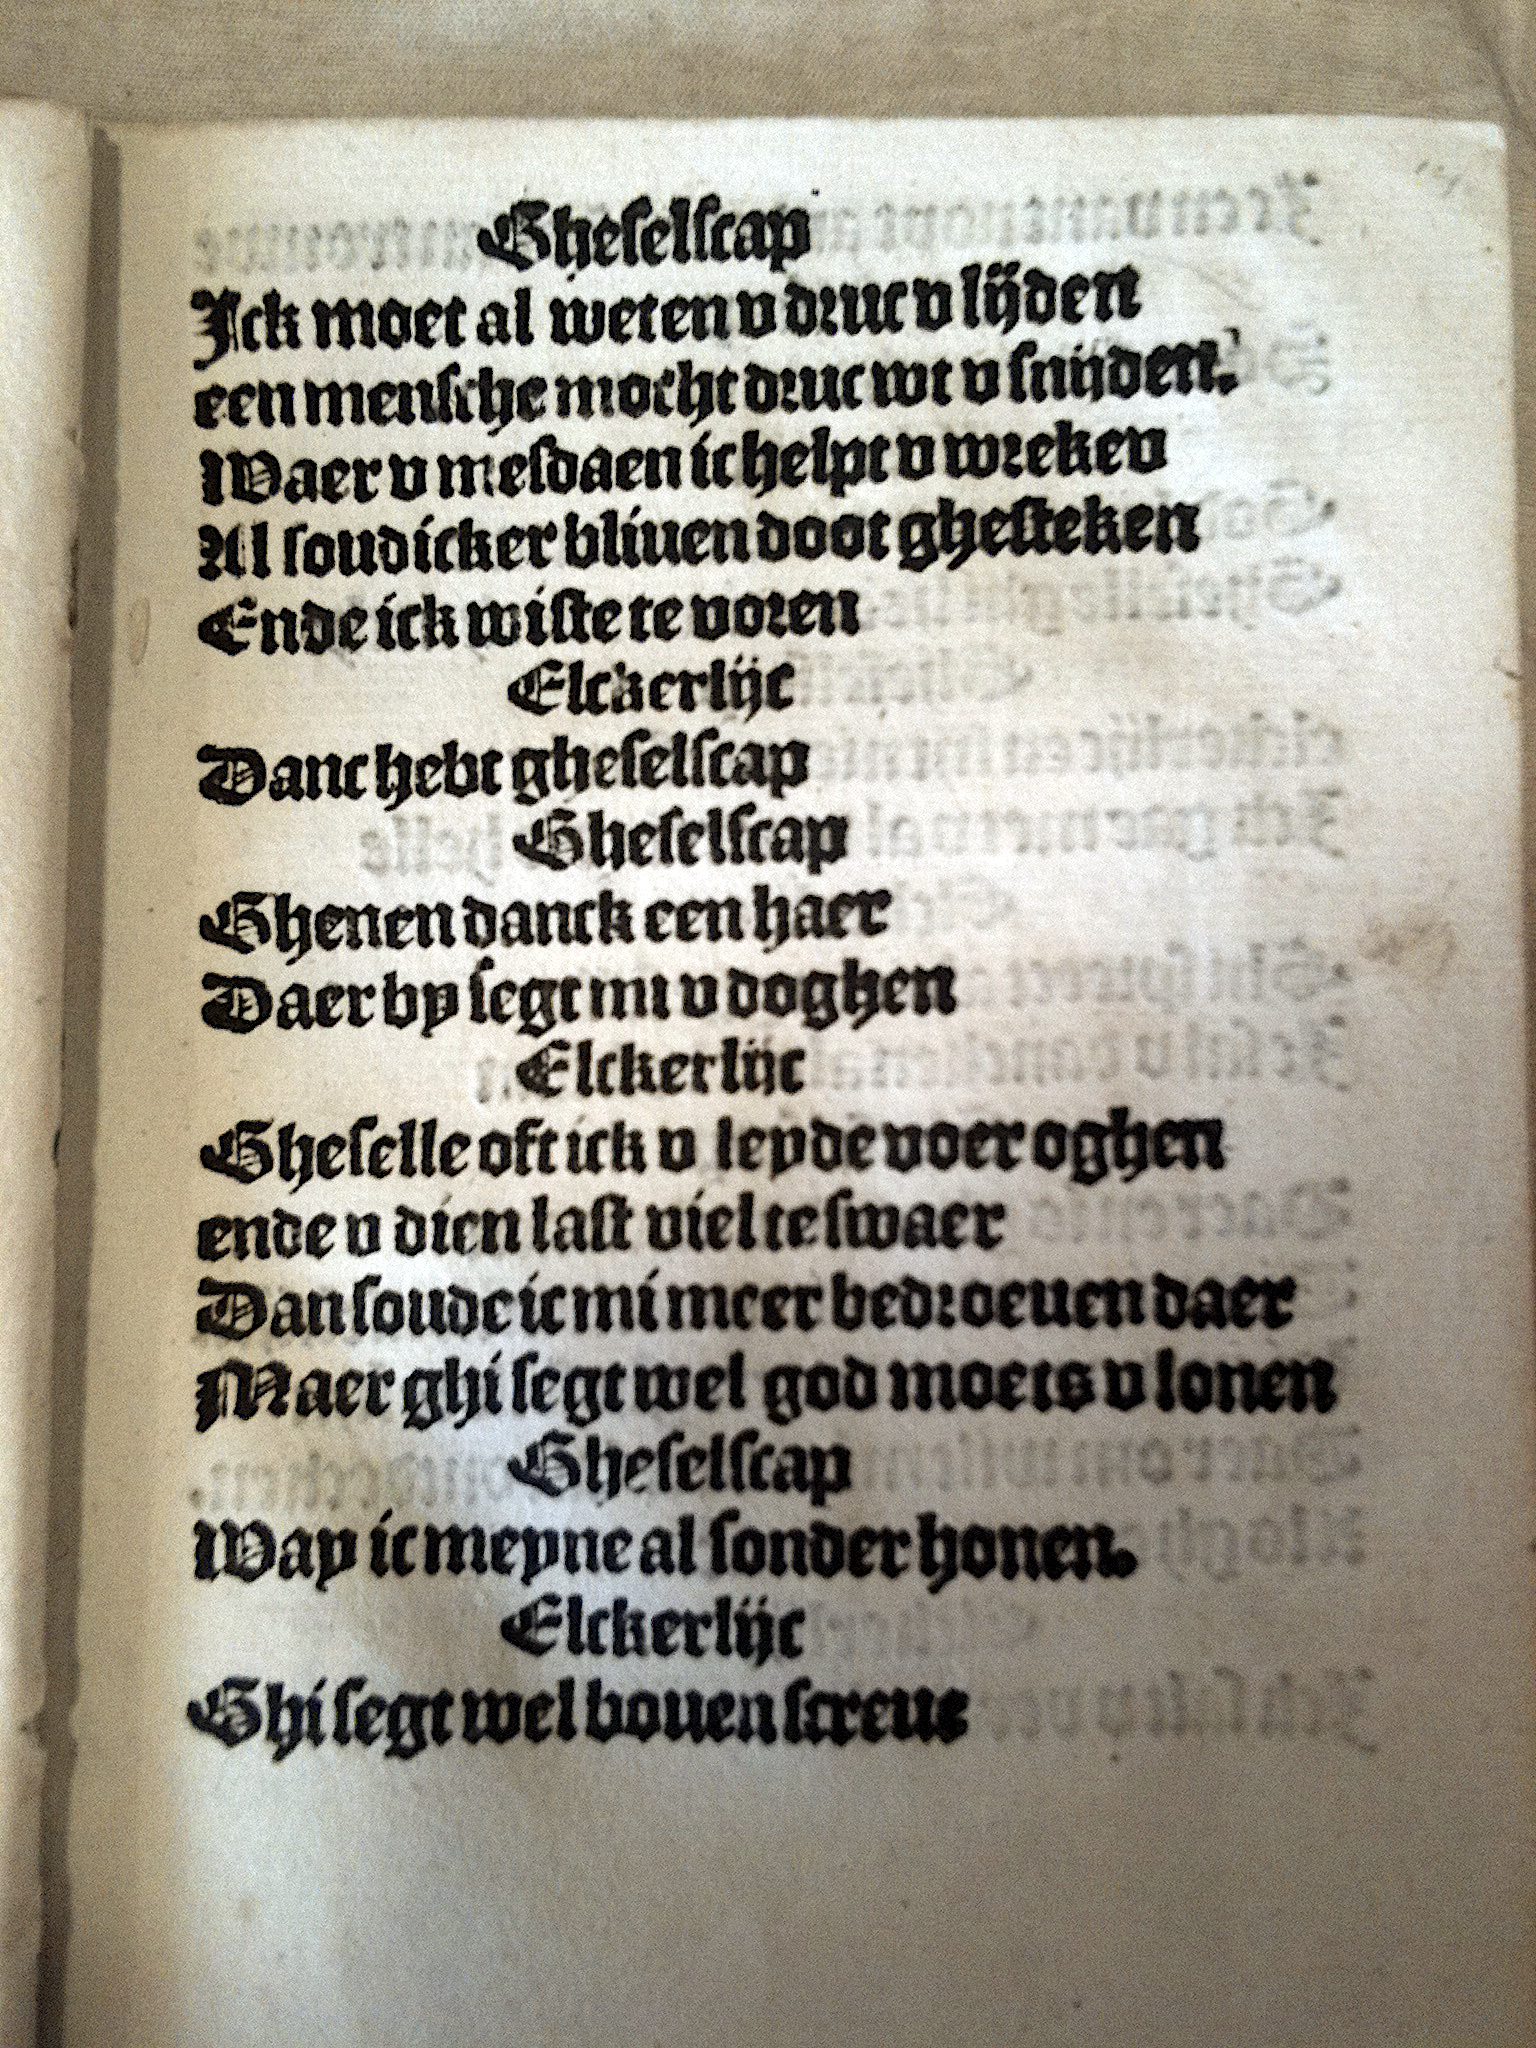 Gheselscap
Ick moet al weten v druc v lijden
een mensche mocht druc wt v snijden.
Waer v mesdaen ic helpt v wreken
Al soudicker bliuen doot ghesteken
Ende ick wiste te voren
Elckerlijc
Danc hebt gheselscap
Gheselscap
Ghenen danck een haer
Daer by segt mi v doghen
Elckerlijc
Gheselle oft ick v leyde voer oghen
ende v dien last viel te swaer
Dan soude ic mi meer bedroeuen daer
Maer ghi segt wel god moets v lonen
Gheselscap
Way ic meyne al sonder honen.
Elckerlijc
Ghi segt wel bouen screue